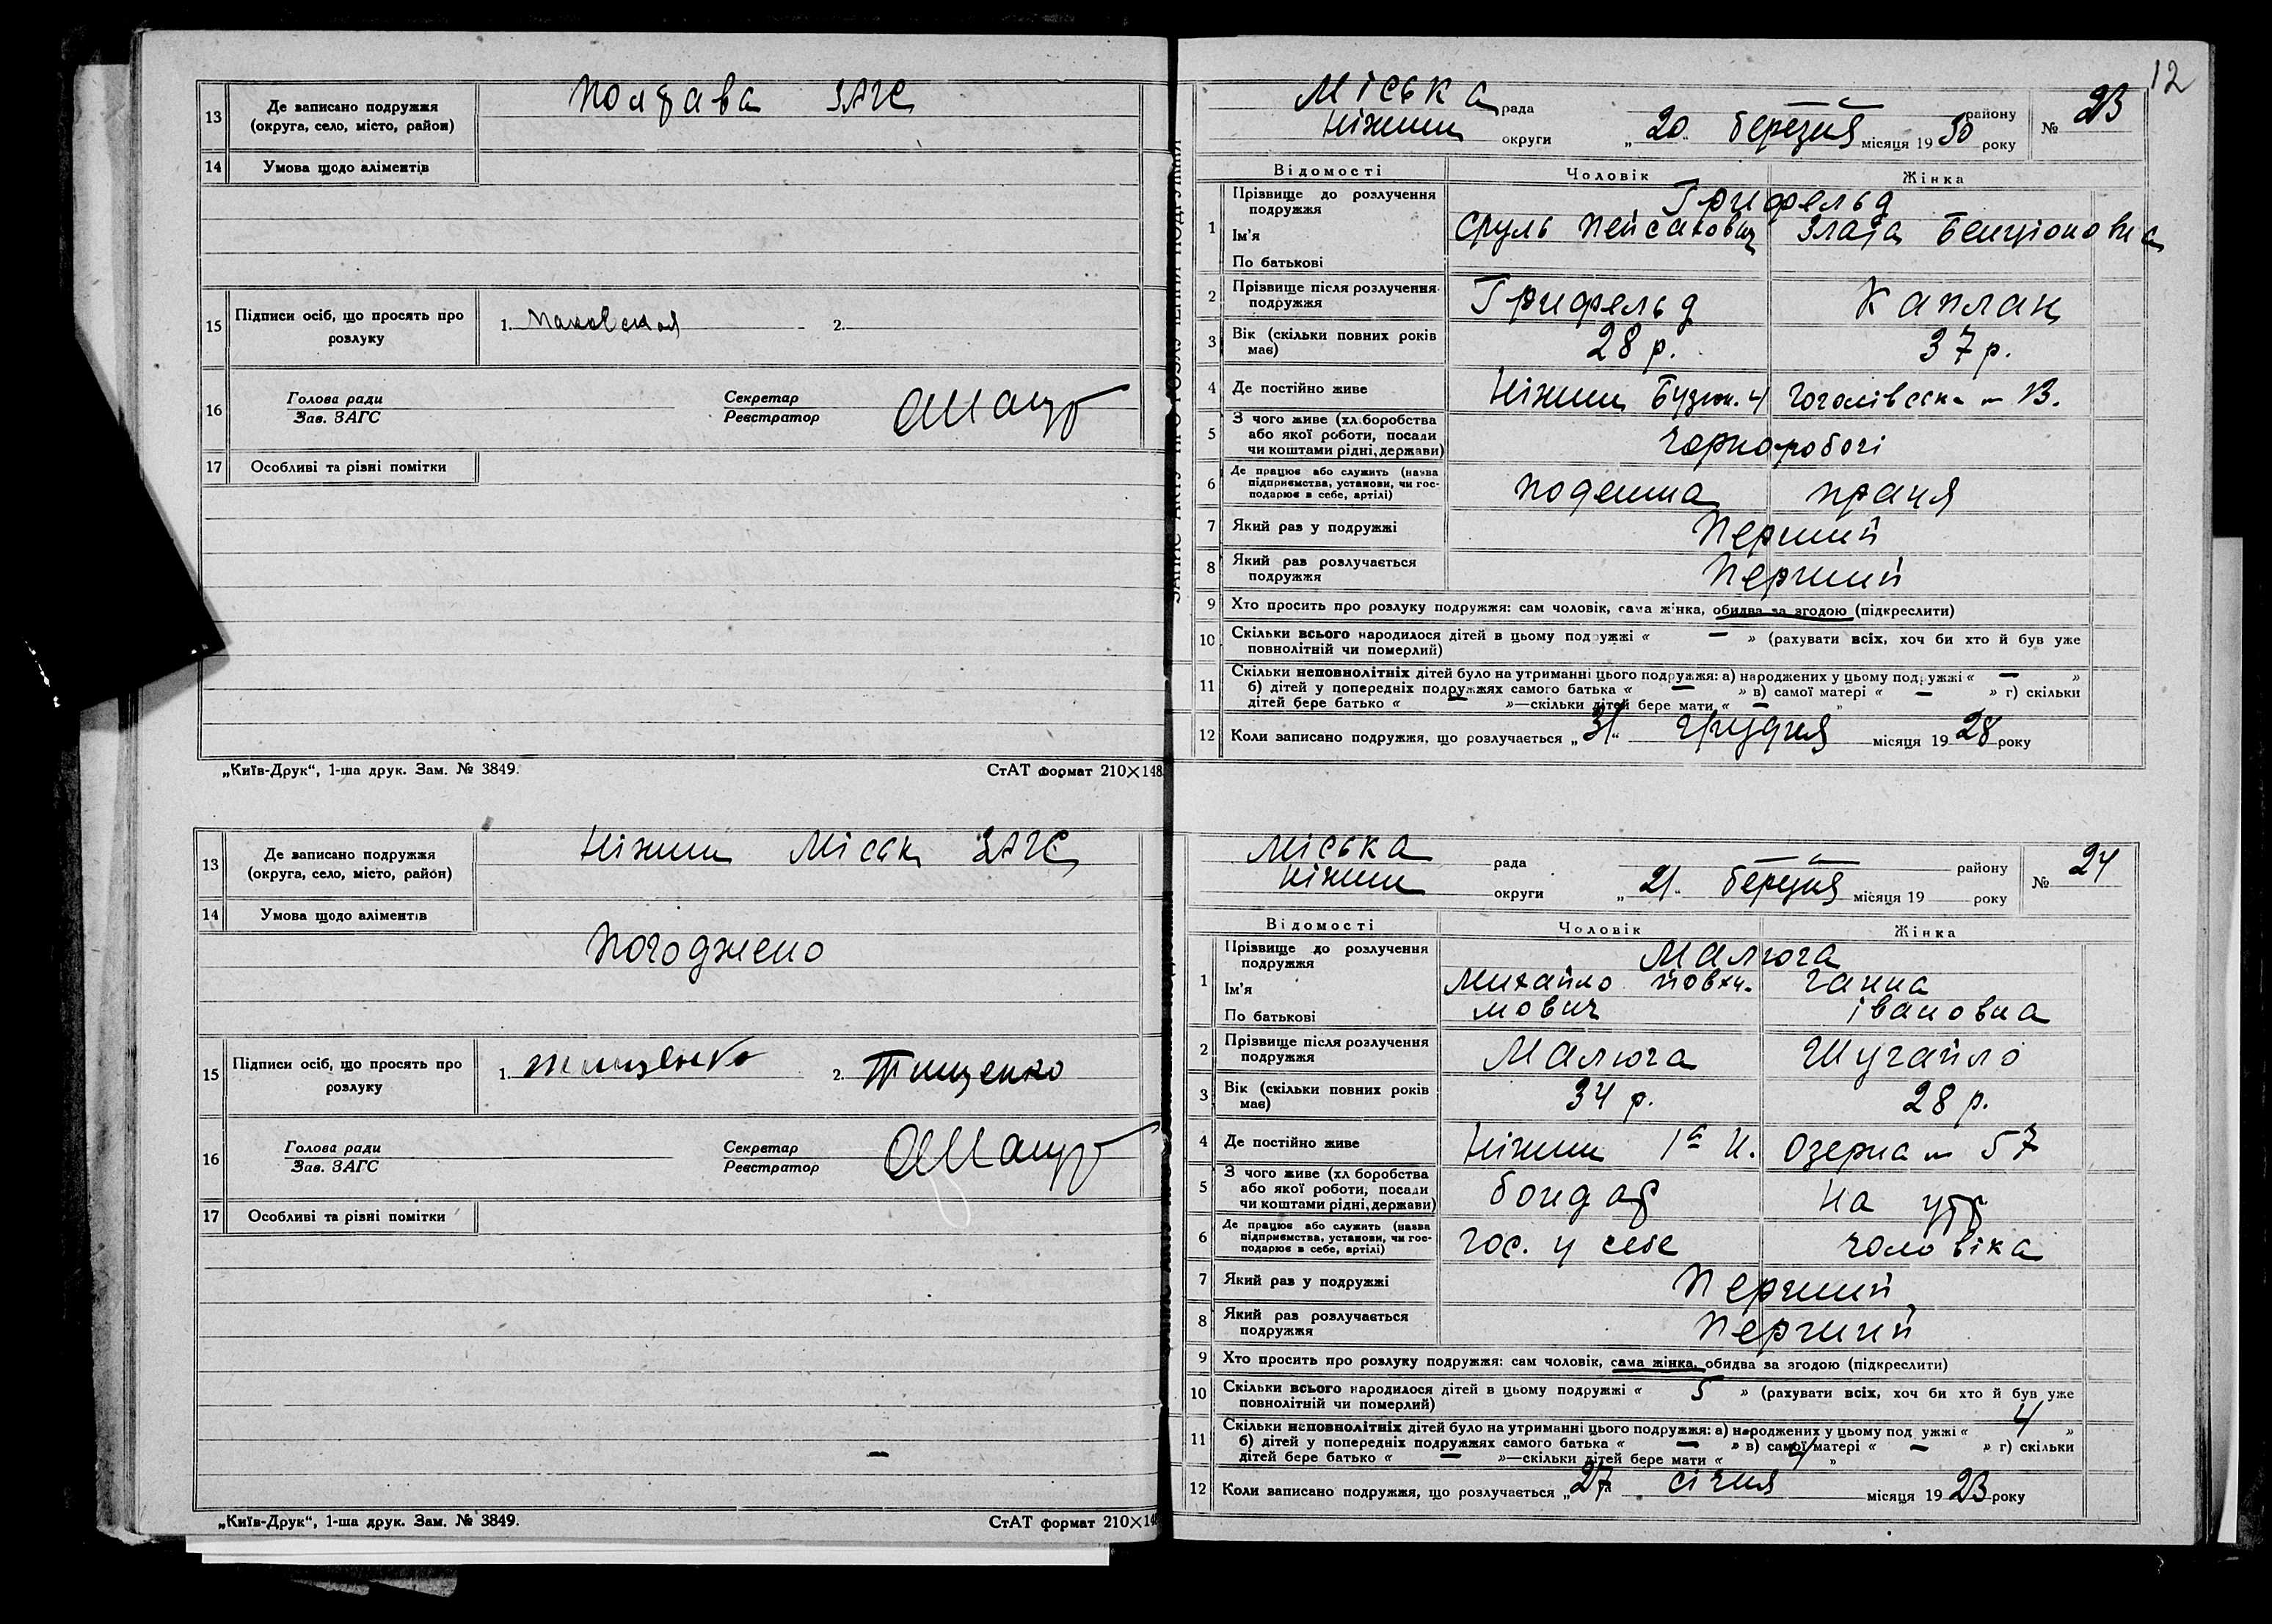 12
13 Де записано подружжя (округа, село, місто, район) Полтава ЗАГС
14 Умова щодо аліментів
15 Підписи осіб, що просять про розлуку 1. 2.
16 Голова ради Зав. ЗАГС Секретар Реєстратор
17 Особливі та різні помітки
„Київ-Друк“, 1-ша друк. Зам. № 3849. СтАТ формат 210×148
13 Де записано подружжя (округа, село, місто, район) Ніжин Міськ ЗАГС
14 Умова щодо аліментів
Погоджено
15 Підписи осіб, що просять про розлуку 1. Тищенко 2. Тищенко
16 Голова ради Зав. ЗАГС Секретар Реєстратор
17 Особливі та різні помітки
„Київ-Друк“, 1-ша друк. Зам. № 3849. СтАТ формат 210×148
Міська рада — району № 23
Ніжин округи „20“ березня місяця 1930 року
Відомості Чоловік Жінка
1 Прізвище до розлучення подружжя Грифельд
Ім'я Сруль Пейсахович Злата Бенціоновна
По батькові
2 Прізвище після розлучення подружжя Грифельд Каплан
3 Вік (скільки повних років має) 28 р. 37 р.
4 Де постійно живе Ніжин Гоголівськ 13.
5 З чого живе (хл.боробства або якої роботи, посади чи коштами рідні, держави) Чорноробочі
6 Де працює або служить (назва підприємства, установи, чи господарює в себе, артілі) поденна праця
7 Який раз у подружжі Перший
8 Який раз розлучається подружжя Перший
9 Хто просить про розлуку подружжя: сам чоловік, сама жінка, обидва за згодою (підкреслити)
10 Скільки всього народилося дітей в цьому подружжі « — » (рахувати всіх, хоч би хто й був уже
повнолітній чи померлий)
11 Скільки неповнолітніх дітей було на утриманні цього подружжя: а) народжених у цьому подружжі « — »
б) дітей у попередніх подружжях самого батька « — » в) самої матері « — » г) скільки
дітей бере батько « — »—скільки дітей бере мати « — »
12 Коли записано подружжя, що розлучається „31“ грудня місяця 1928 року
Міська рада — району № 24
Ніжин округи „21“ березня місяця 19 року
Відомості Чоловік Жінка
1 Прізвище до розлучення подружжя Малюга
Ім'я Михайло Ганна
По батькові мович Івановна
2 Прізвище після розлучення подружжя Малюга Шугайло
3 Вік (скільки повних років має) 34 р. 28 р.
4 Де постійно живе Ніжин Озерна 57
5 З чого живе (хл боробства або якої роботи, посади чи коштами рідні, держави) бондар на утр
6 Де працює або служить (назва підприємства, установи, чи господарює в себе, артілі) гос. у себе чоловіка
7 Який раз у подружжі Перший
8 Який раз розлучається подружжя Перший
9 Хто просить про розлуку подружжя: сам чоловік, сама жінка, обидва за згодою (підкреслити)
10 Скільки всього народилося дітей в цьому подружжі « 5 » (рахувати всіх, хоч би хто й був уже
повнолітній чи померлий)
11 Скільки неповнолітніх дітей було на утриманні цього подружжя: а) народжених у цьому подружжі « 4 »
б) дітей у попередніх подружжях самого батька « — » в) самої матері « — » г) скільки
дітей бере батько « — »—скільки дітей бере мати « 4 »
12 Коли записано подружжя, що розлучається „27“ січня місяця 1923 року